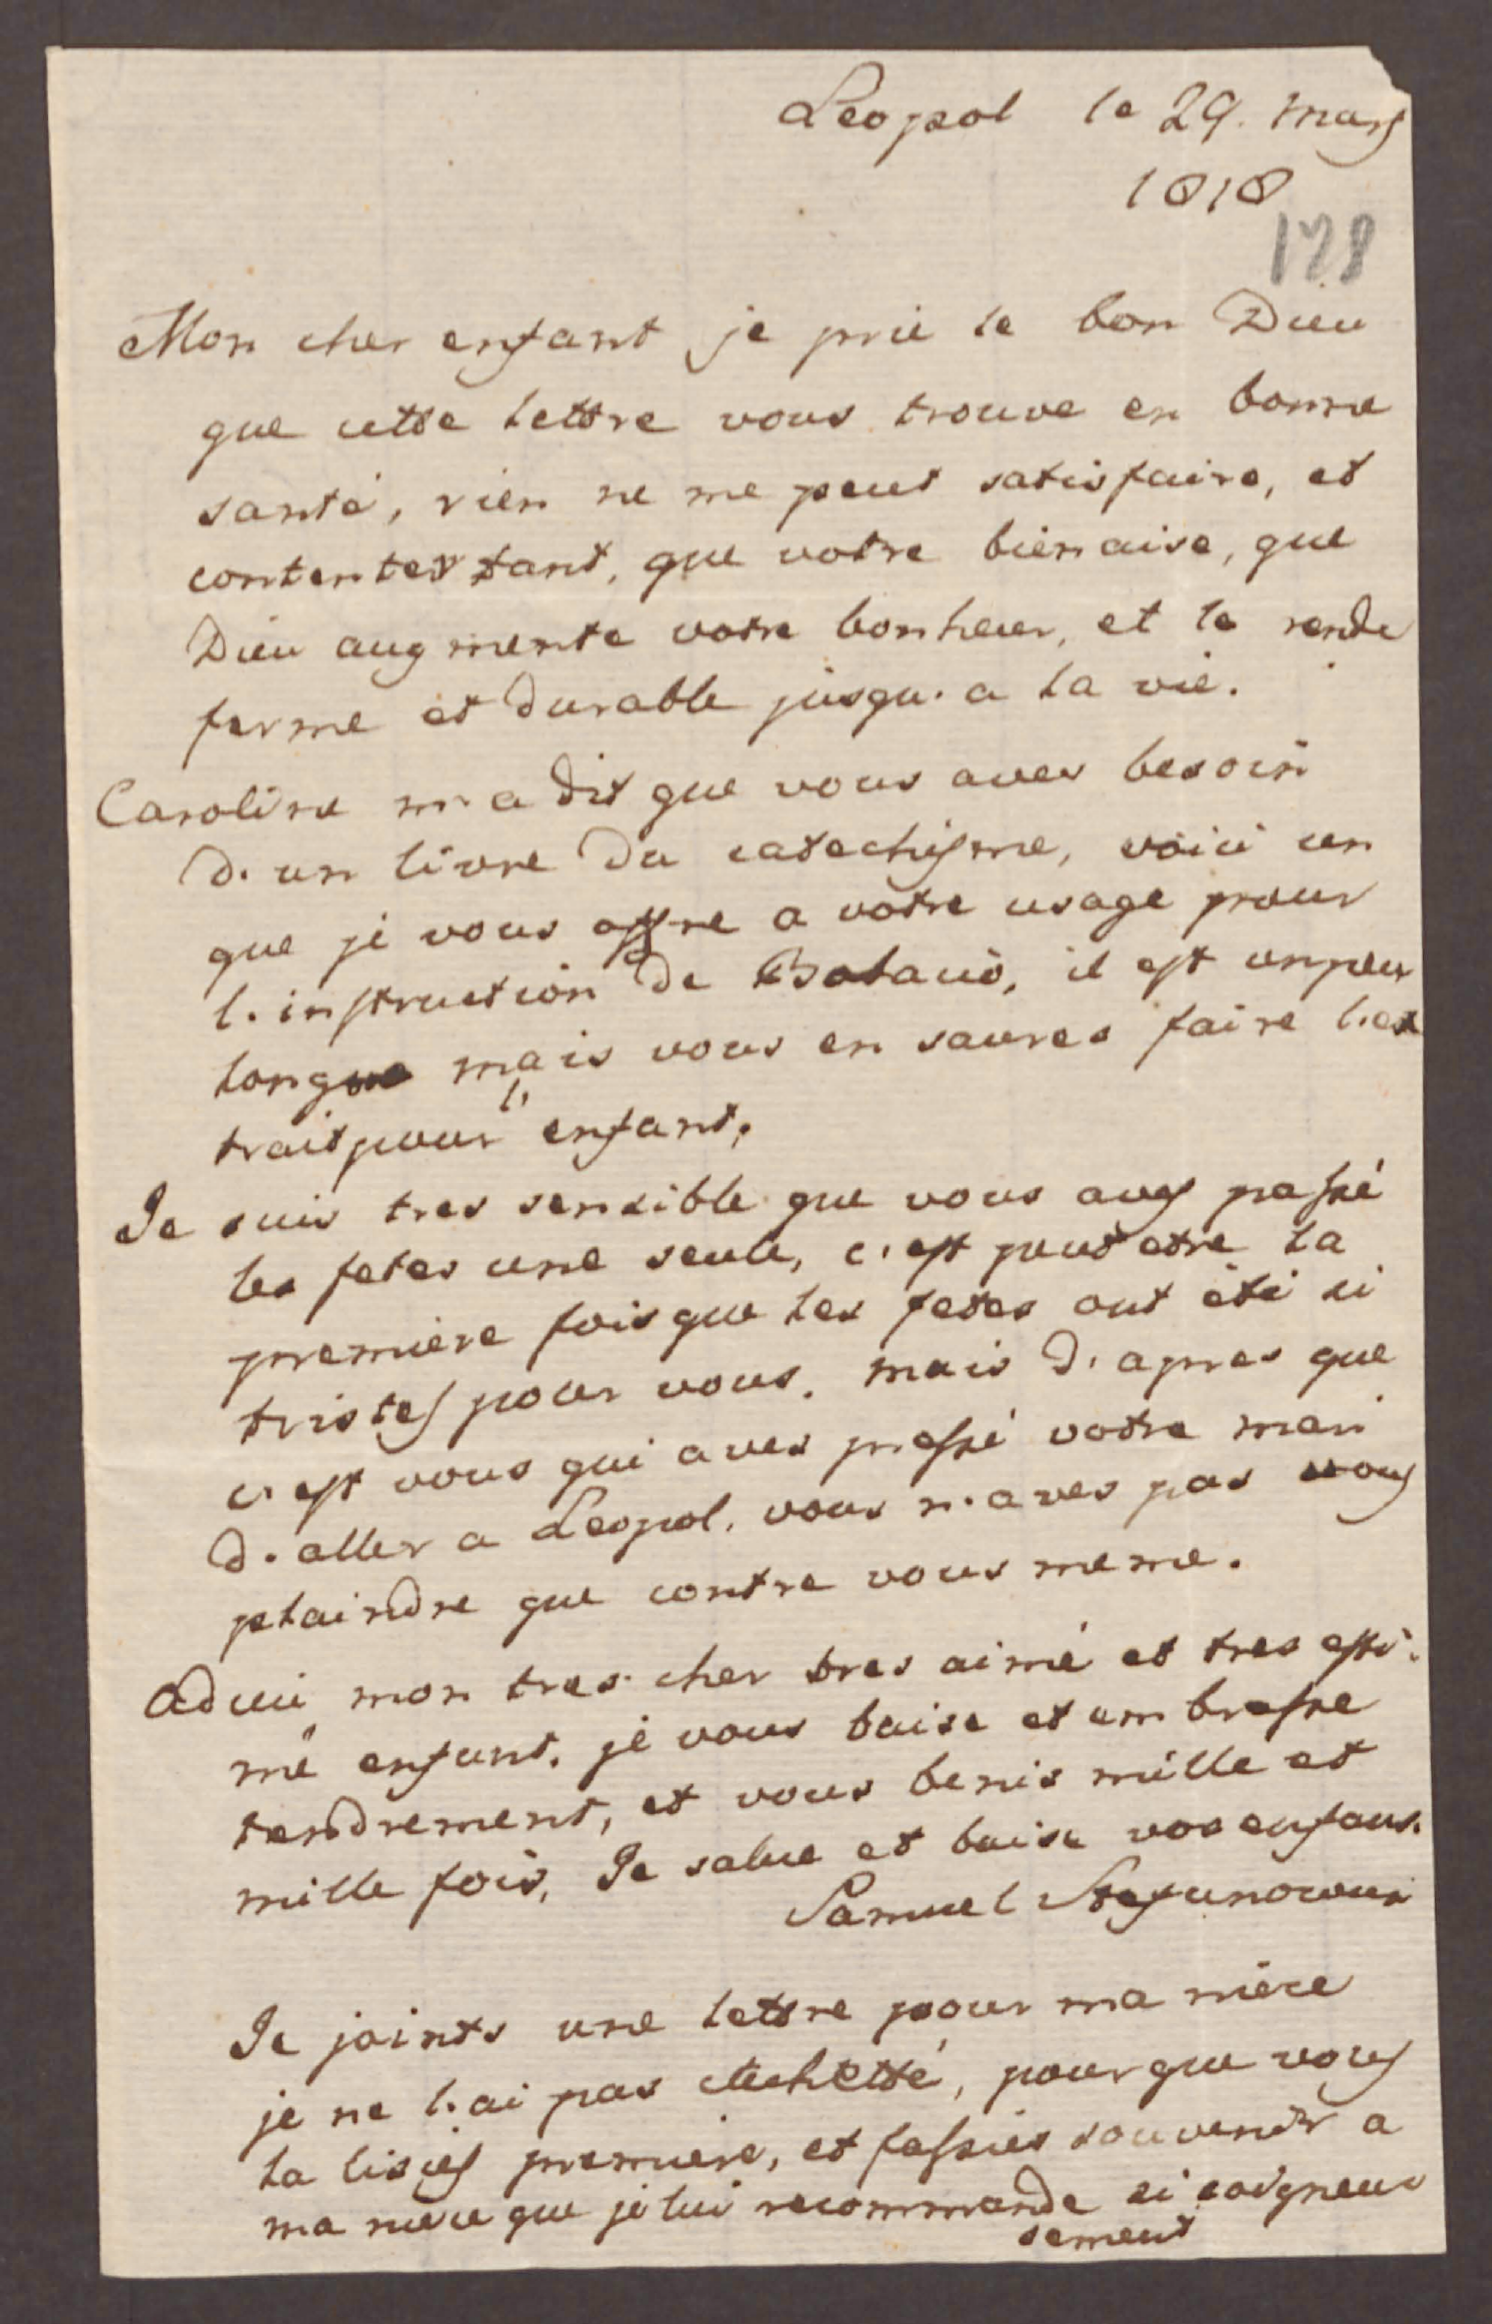 Leopol le 29. mars
1818
128
Mon cher enfant je prie le bon Dieu
que cette lettre vous trouve en bonne
santé, rien ne me peut satisfaire, et
contenter tant, que votre bienaise, que
Dieu augmente votre bonheur, et le rende
ferme et durable jusqu'a la vie.
Caroline m'a dit que vous aves besoin
d'un livre du catechisme, voici un
que je vous offre a votre usage pour
l'instruction de, il est un peu
long mais vous en saures faire l'ex
trait pour l'enfant.
Je suis tres sensible que vous aves passé
les fetes une seule, c'est peut etre la
premiere fois que les fetes ont été si
tristes pour vous. mais d'apres que
c'est vous qui aves pressé votre mari
d'aller a Leopol, vous n'aves pas vous
plaindre que contre vous meme.
Adieu mon tres cher tres aimé et tres esti-
mé enfant. je vous baise et embrasse
tendrement, et vous benis mille et
mille fois, Je salue et baise vos enfans.
Samuel
Je joints une lettre pour ma niece
je ne l'ai pas, pour que vous
la lisies premiere, et fassies souvenir a
ma niece que je lui recommande si soigneu
sement